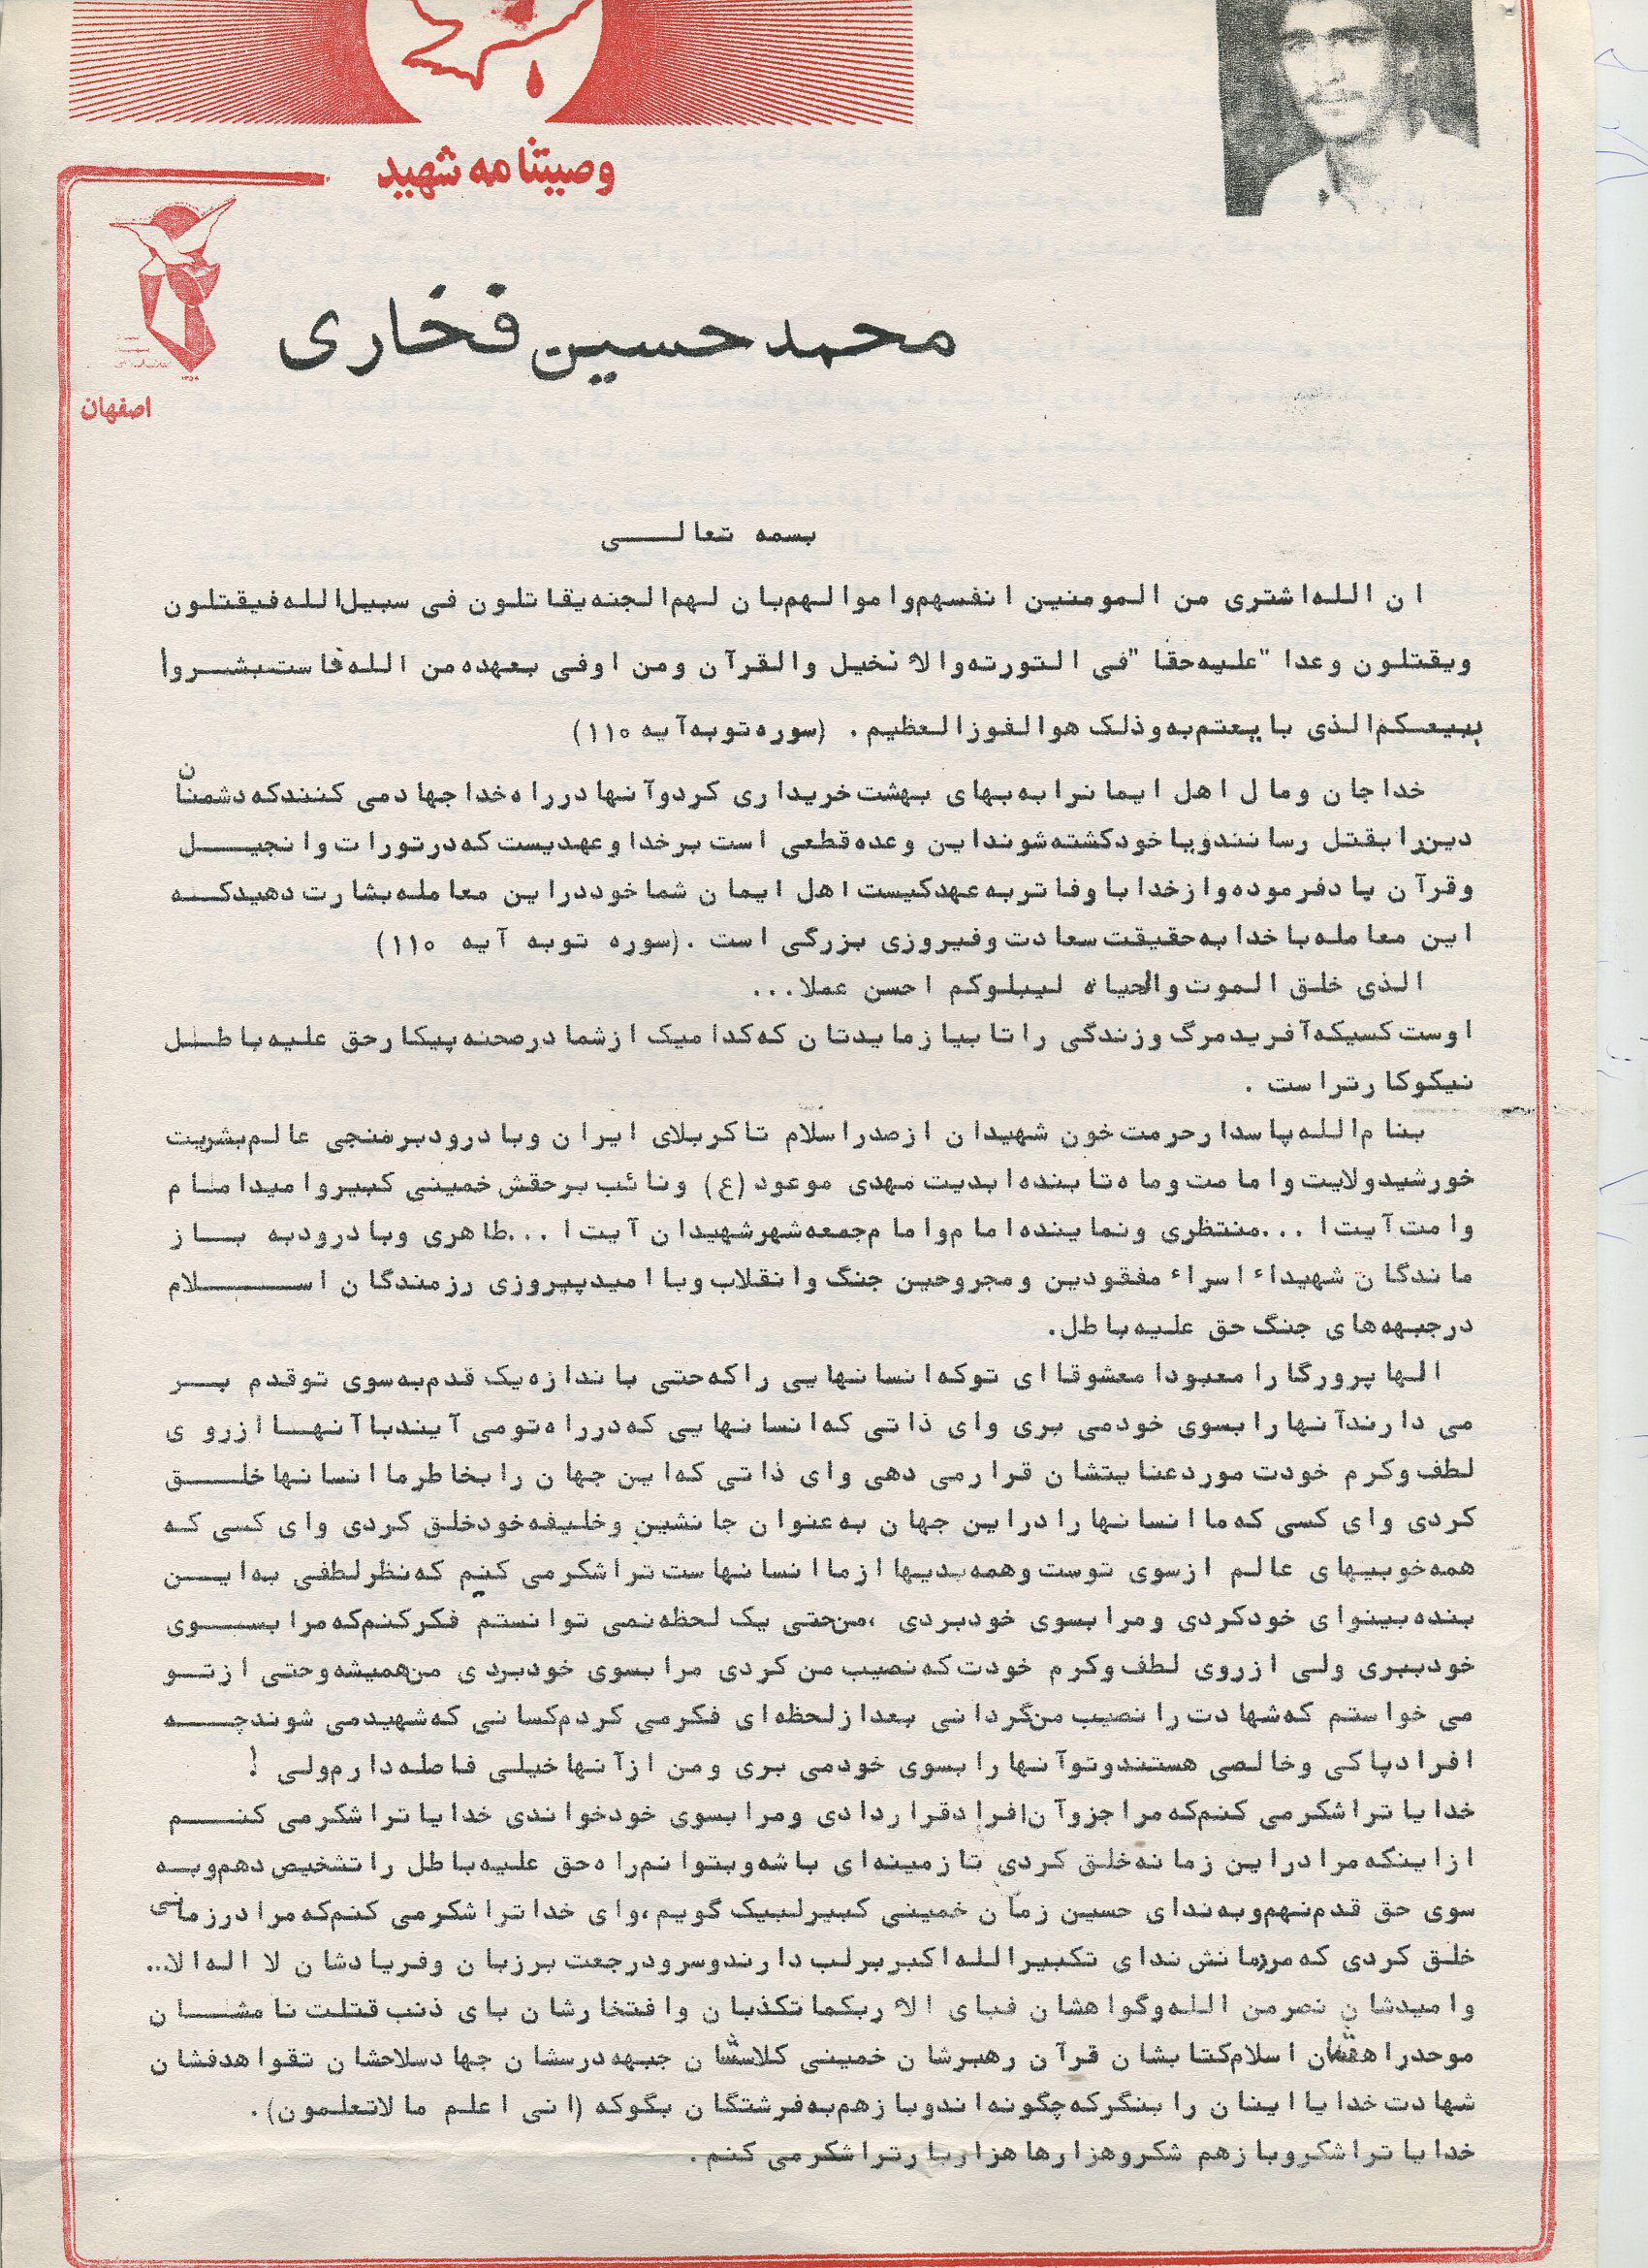 وصیتنامه شهید
اصفهان
محمد حسین فخاری
بسمه تعالی
ان الله اشتری من المومنین انفسهم و اموالهم بان لهم الجنه یقاتلون فی سبیل الله فیقتلون
ویقتلون وعدا "علیه حقا "فی التورته والا نخیل والقرآن ومن اوفی بعهده من الله فاستبشروا
ببیعکم الذی بایعتم به وذلک هوالفوزالعظیم . (سوره توبه آیه ۱۱۰)
خداجان ومال اهل ایمانرا به بهای بهشت خریداری کردوآنها درراه خداجهاد می کنندکه دشمنان
دین را بقتل رسانندویا خودکشته شونداین وعده قطعی است برخدا وعهدیست که درتورات وانجیل
وقرآن یادفرموده وازخدا باوفاتر به عهدکیست اهل ایمان شما خوددراین معامله بشارت دهیدکه
این معامله با خدا به حقیقت سعادت وفیروزی بزرگی است .(سوره توبه آیه ۱۱۰)
الذی خلق الموت والحیاه لیبلوکم احسن عملا...
اوست کسیکه آفریدمرگ وزندگی را تا بیازمایدتان که کدامیک ازشما درصحنه پیکارحق علیه باطل
نیکوکارتراست .
بنام الله پاسدارحرمت خون شهیدان ازصدراسلام تا کربلای ایران وبادرودبرمنجی عالم بشریت
خورشیدولایت وامامت وماه تابنده ابدیت مهدی موعود(ع) ونائب برحقش خمینی کبیروامیدامام
وامت آیت ا ...منتظری ونماینده امام وامام جمعه شهرشهیدان آیت ا ...طاهری وبادرودبه باز
ماندگان شهیداء اسراء مفقودین ومجروحین جنگ وانقلاب وباامیدپیروزی رزمندگان اسلام
درجبهه های جنگ حق علیه باطل.
الها پرورگارا معبودا معشوقا ای توکه انسانهایی راکه حتی باندازه یک قدم به سوی توقدم بر
می دارندآنها را بسوی خودمی بری وای ذاتی که انسانهایی که درراه تومی آیندباآنهاازروی
لطف وکرم خودت موردعنایتشان قرارمی دهی وای ذاتی که این جهان را بخاطرماانسانهاخلق
کردی وای کسی که ماانسانها را دراین جهان به عنوان جانشین وخلیفه خودخلق کردی وای کسی که
همه خوبیهای عالم ازسوی توست وهمه بدیها ازماانسانهاست تراشکرمی کنم که نظرلطفی به این
بنده بینوای خودکردی ومرا بسوی خودبردی ،من حتی یک لحظه نمی توانستم فکرکنم که مرا بسوی
خودببری ولی ازروی لطف وکرم خودت که نصیب من کردی مرا بسوی خودبردی من همیشه وحتی ازتو
می خواستم که شهادت را نصیب من گردانی بعدازلحظه ای فکرمی کردم کسانی که شهیدمی شوندچه
افرادپاکی وخالصی هستندوتوآنها را بسوی خودمی بری ومن ازآنهاخیلی فاصله دارم ولی !
خدایا تراشکرمی کنم که مراجزوآن افرادقراردادی ومرا بسوی خودخواندی خدایا تراشکرمی کنم
ازاینکه مرادراین زمانه خلق کردی تا زمینه ای باشه وبتوانم راه حق علیه باطل را تشخیص دهم وبه
سوی حق قدم نهم وبه ندای حسین زمان خمینی کبیرلبیک گویم،وای خدا تراشکرمی کنم که مرادرزمانی
خلق کردی که مردمانش ندای تکبیرالله اکبربرلب دارندوسرودرجعت برزبان وفریادشان لا اله الا...
وامیدشان نصرمن الله وگواهشان فبای الا ربکما تکذبان وافتخارشان بای ذنب قتلت نامشان
موحدراهشان اسلام کتابشان قرآن رهبرشان خمینی کلاسشان جبهه درسشان جهادسلاحشان تقواهدفشان
شهادت خدایا اینان را بنگرکه چگونه اندوبازهم به فرشتگان بگوکه (انی اعلم مالاتعلمون).
خدایا تراشکروبازهم شکروهزارها هزاربارتراشکرمی کنم .